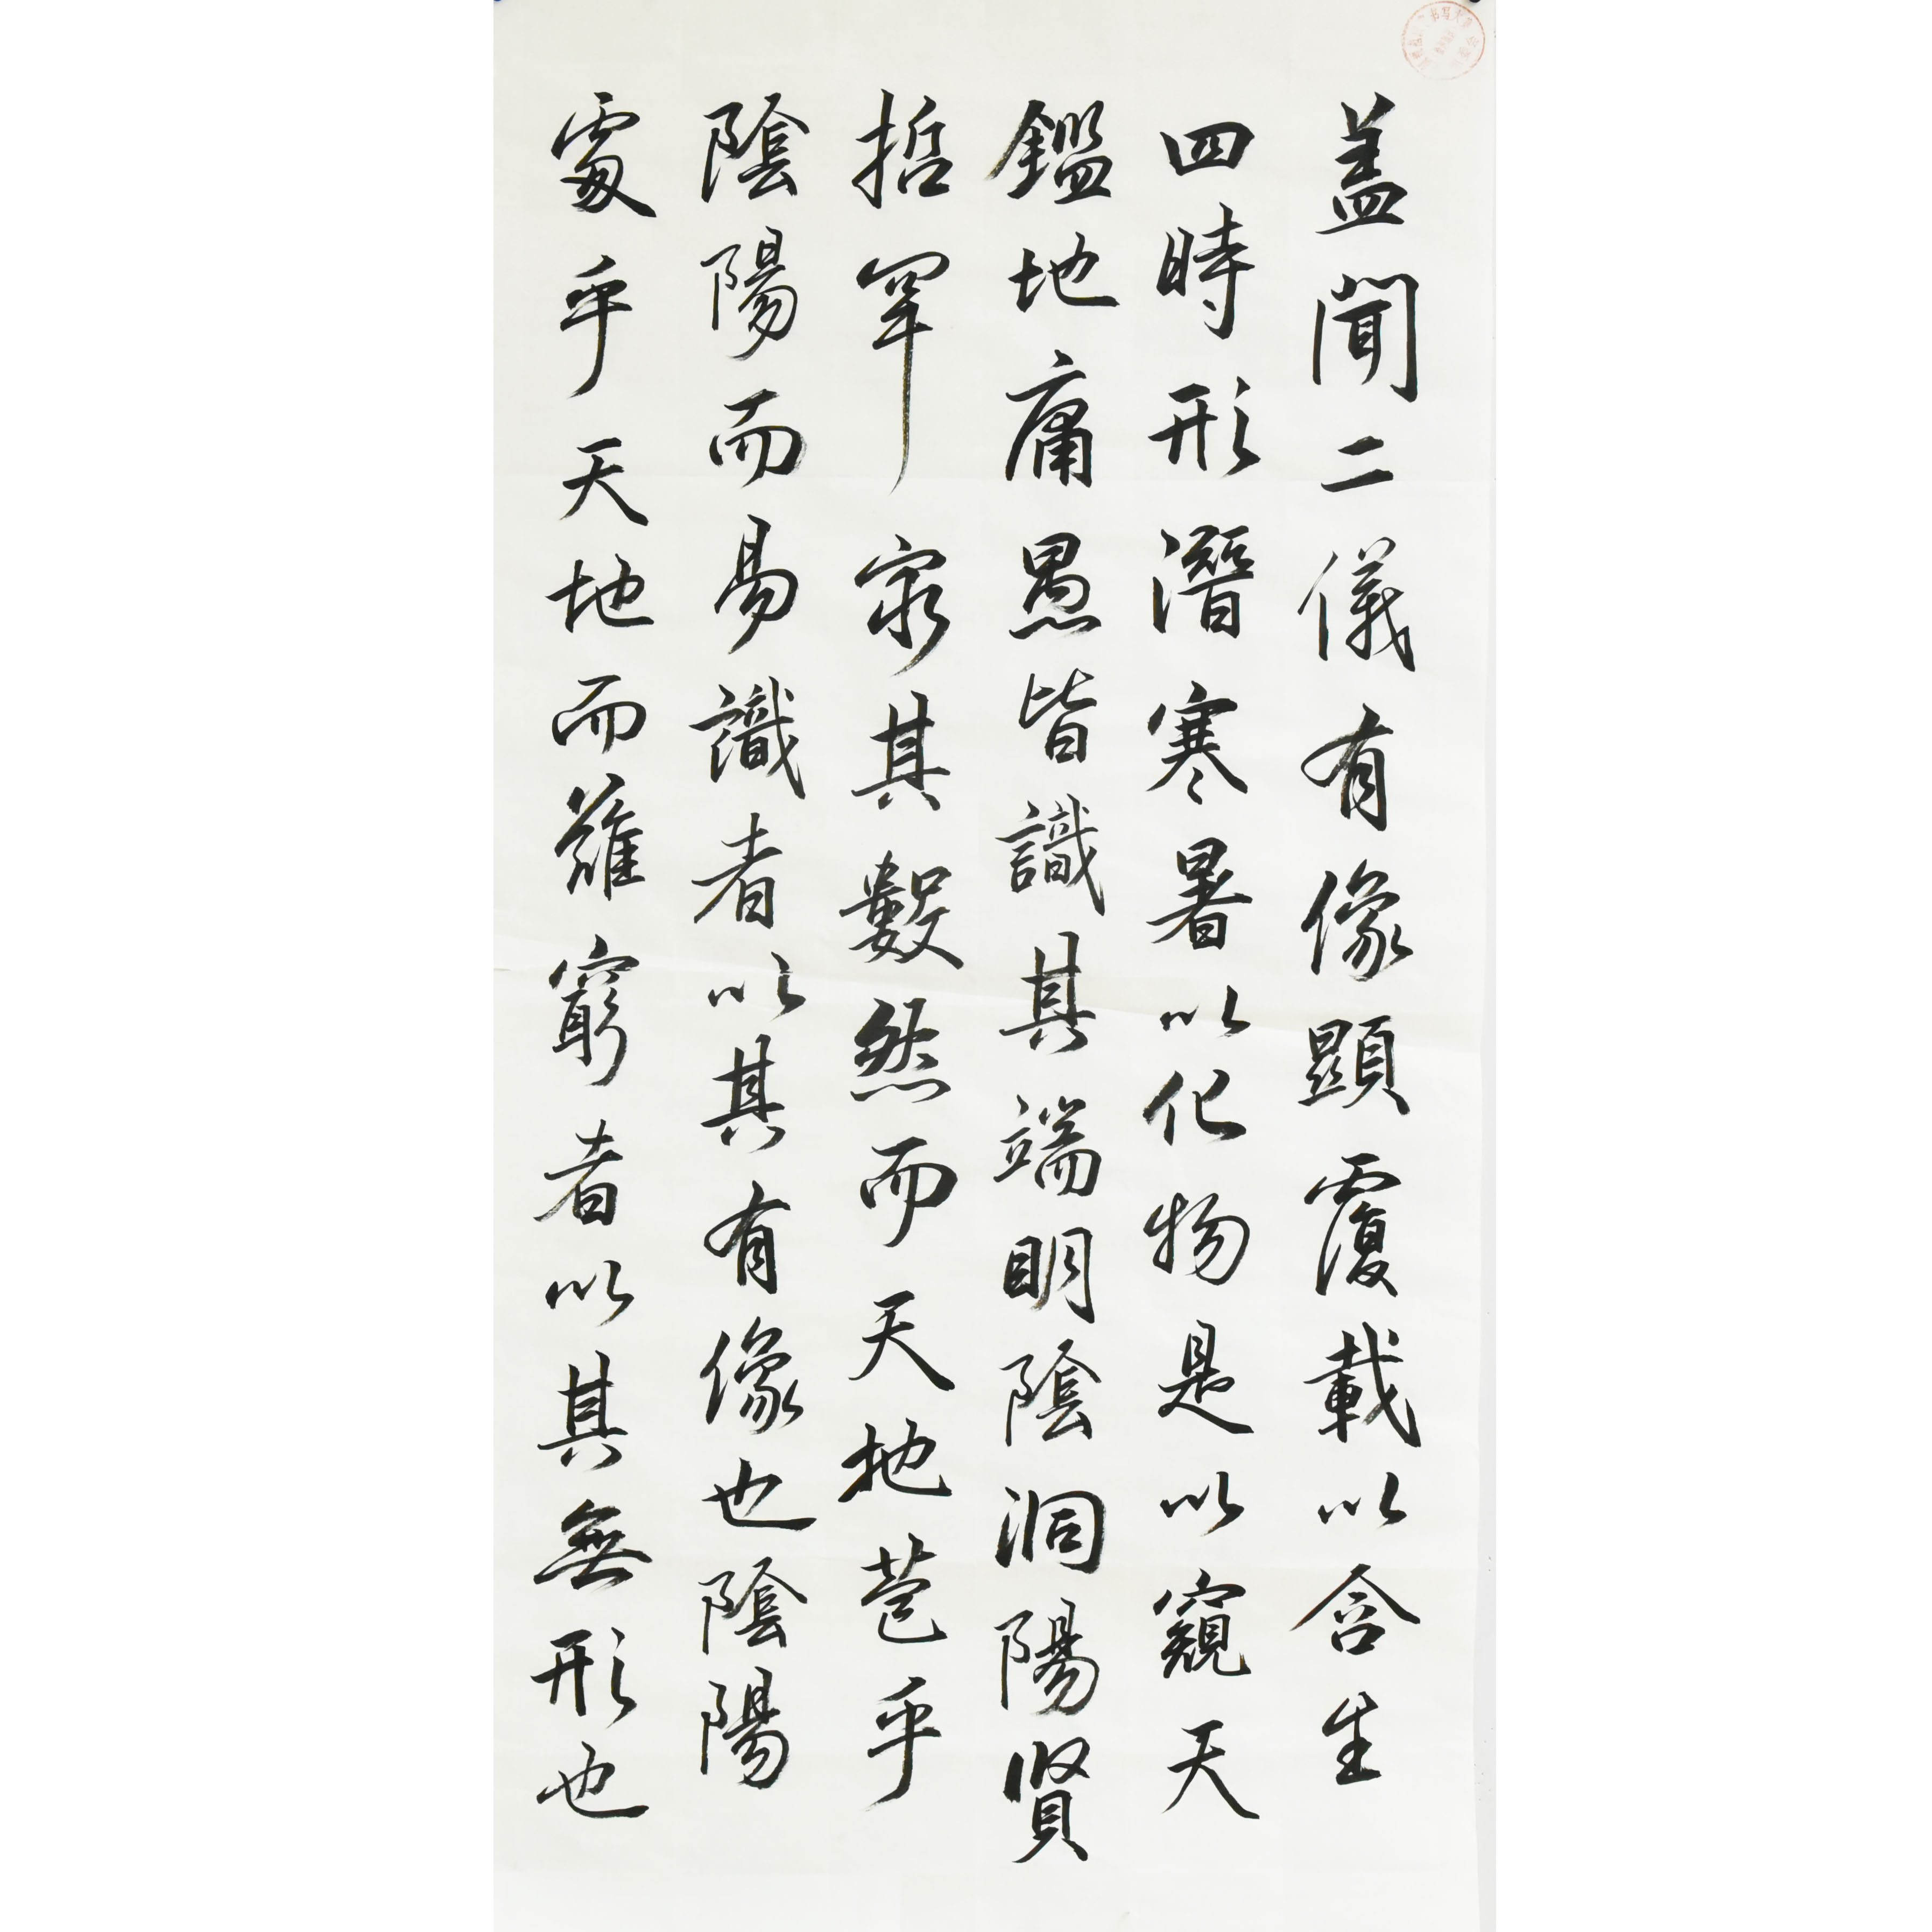 蓋聞二儀有像顯覆載以含生
四時形潛寒暑以化物是以窺天
鑑地庸愚皆識其端明陰洞陽賢
哲罕窮其數然而天地苞乎
陰陽而易識者以其有像也陰陽
處乎天地而難窮者以其無形也